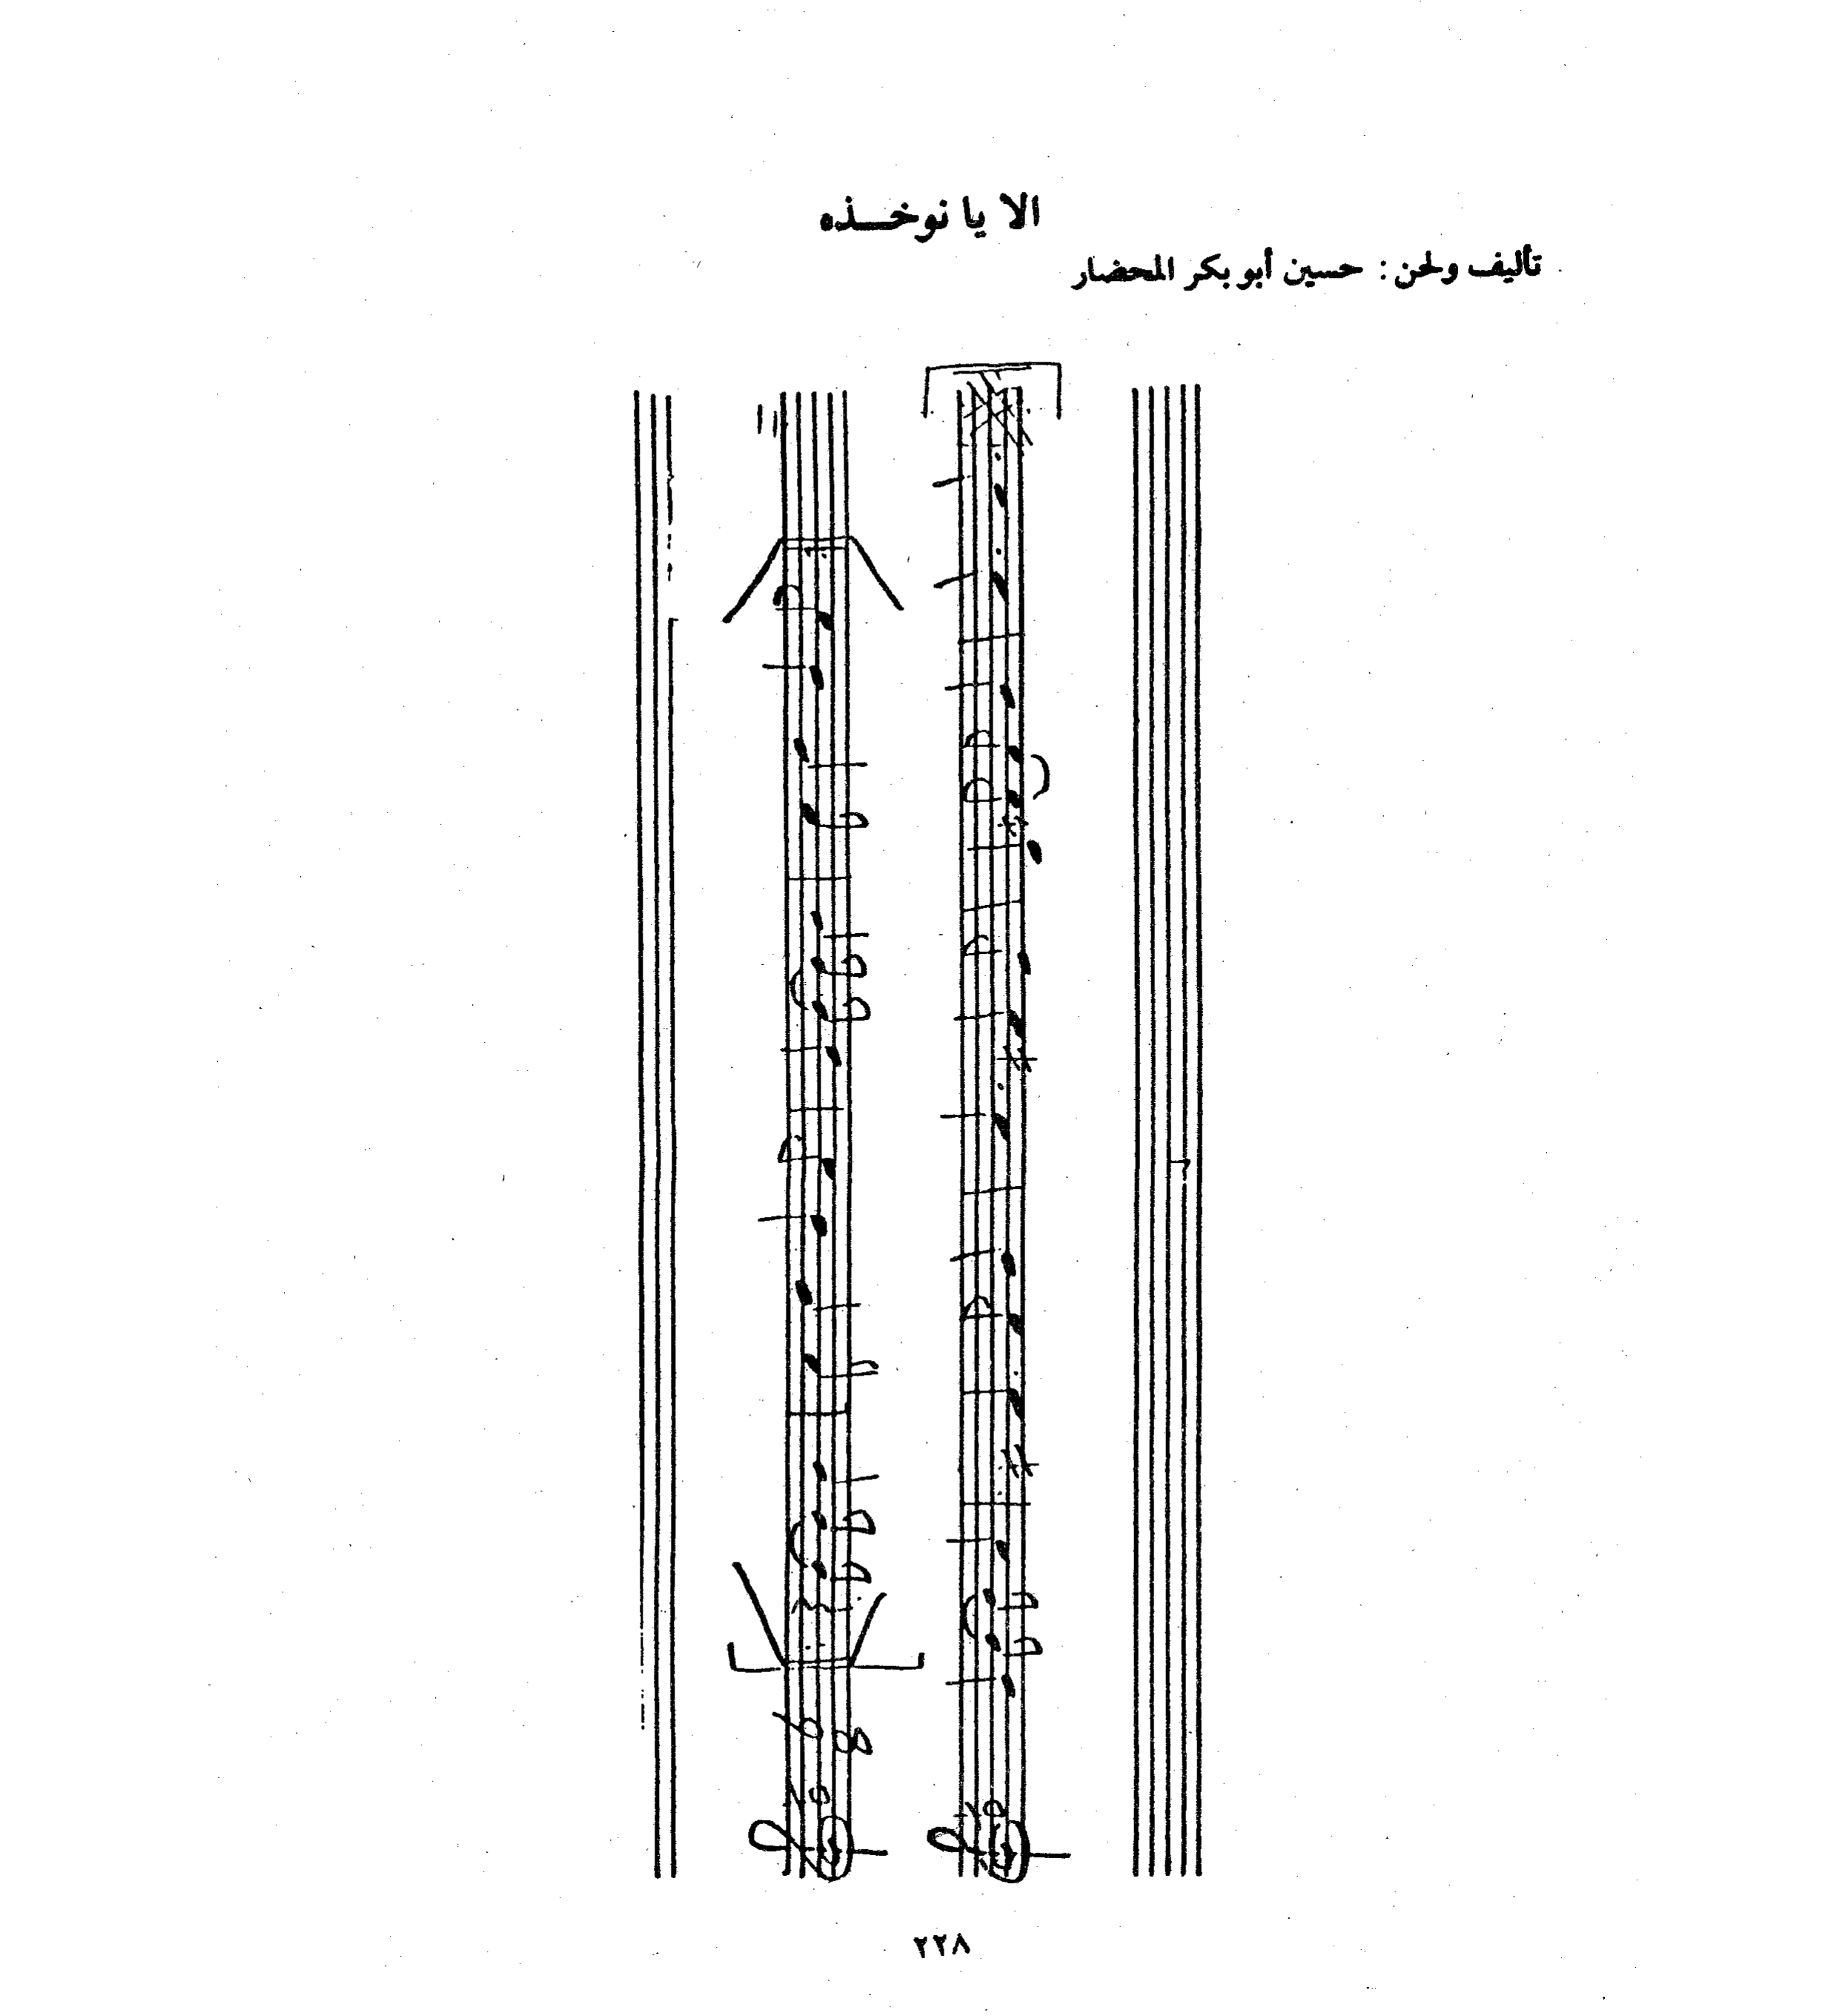 الا يا نوخـــذه
تأليف ولحن : حسين أبو بكر المحضار
6 8
٢٢٨